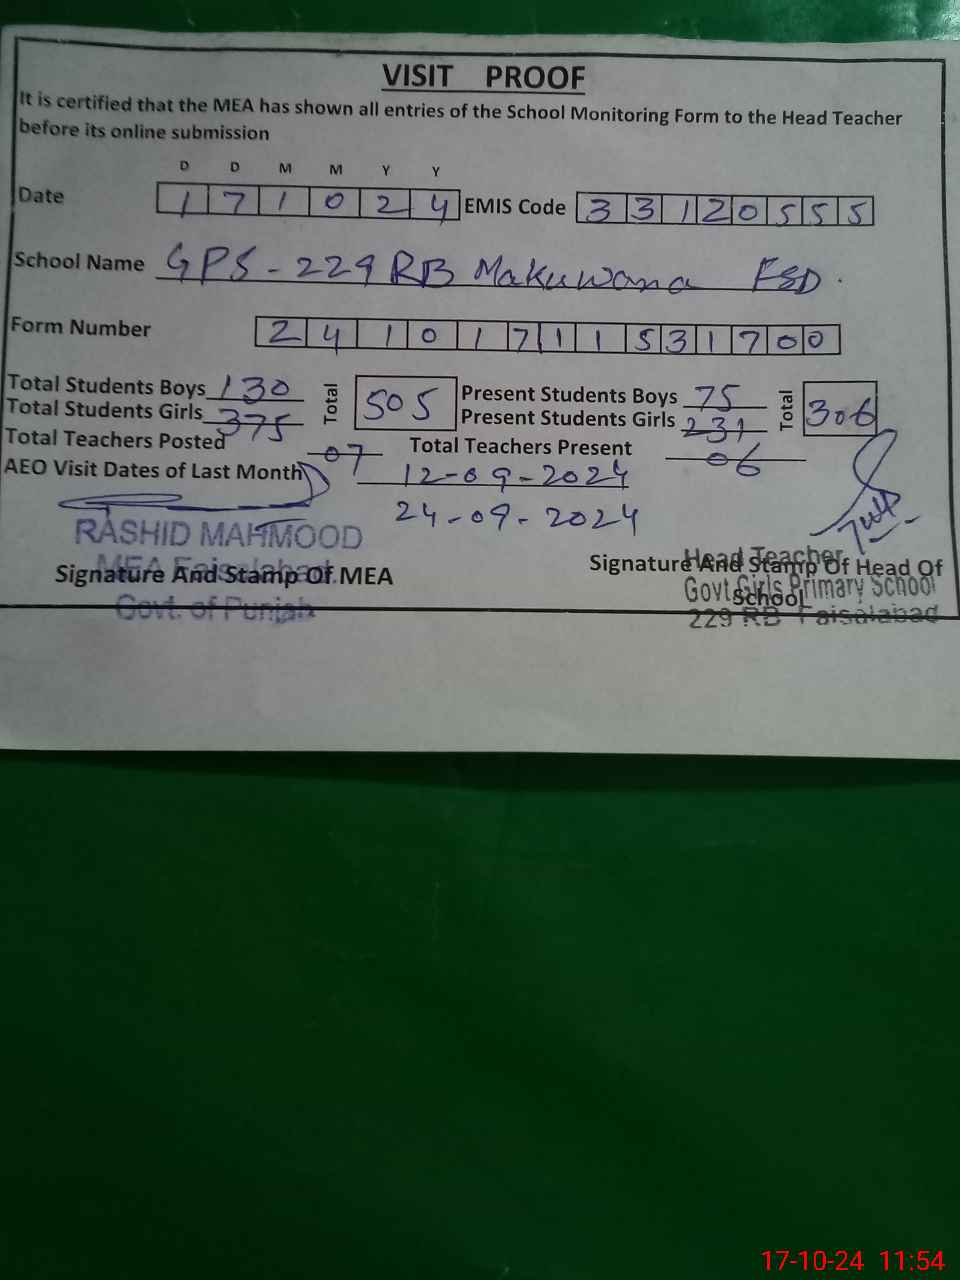 VISIT PROOF
It is certified that the MEA has shown all entries of the School Monitoring Form to the Head Teacher
before its online submission
D D M M Y Y
Date 1 7 1 0 2 4 EMIS Code 3 3 1 2 0 5 5 5
School Name GPS - 229 RB Makuwana FSD.
Form Number 2 4 1 0 1 7 1 1 5 3 1 7 0 0
Total Students Boys 130 Total 505 Present Students Boys 75 Total 306
Total Students Girls 375 Present Students Girls 231
Total Teachers Posted 07 Total Teachers Present 06
AEO Visit Dates of Last Month 12-09-2024
24-09-2024
RASHID MAHMOOD
MEA Faisalabad
Signature And Stamp Of MEA
Govt. of Punjab
Signature And Stamp Of Head Of
School
Head Teacher
Govt Girls Primary School
229 RB Faisalabad
17-10-24 11:54